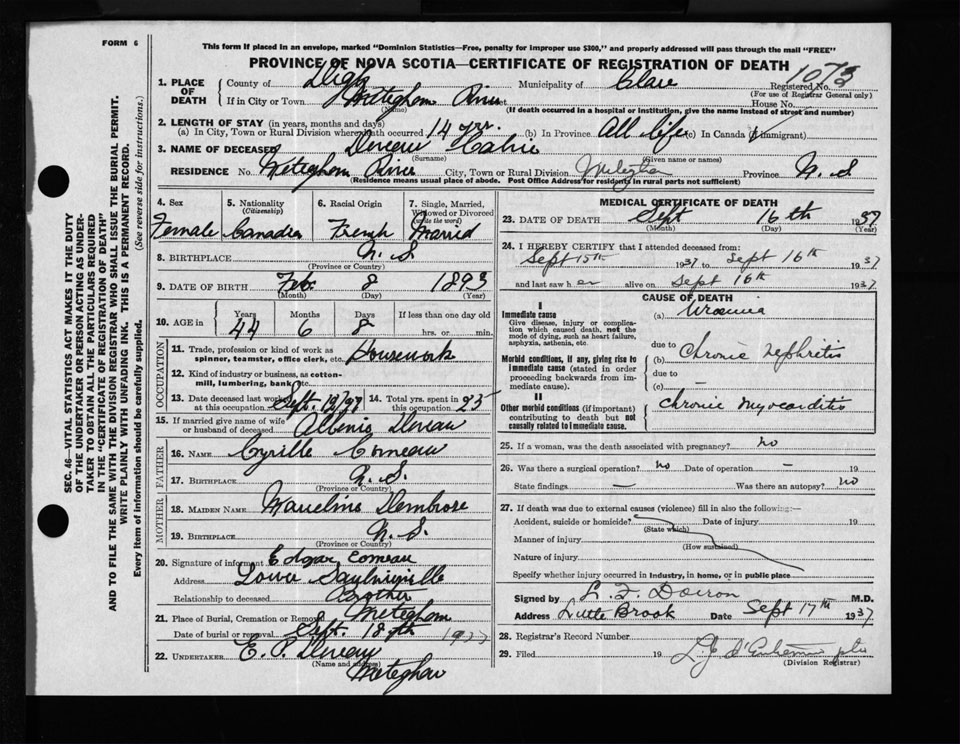 FORM 6
This form if placed in an envelope, marked "Dominion Statistics—Free, penalty for improper use $300," and properly addressed will pass through the mail "FREE"
PROVINCE OF NOVA SCOTIA—CERTIFICATE OF REGISTRATION OF DEATH
1073
1. PLACE OF DEATH
County of Digby Municipality of Clare Registered No.
(For use of Registrar General only)
If in City or Town Meteghan River House No.
(Name) (If death occurred in a hospital or institution, give the name instead of street and number)
2. LENGTH OF STAY (in years, months and days)
(a) In City, Town or Rural Division where death occurred 14 yrs. (b) In Province All life (c) In Canada (if immigrant)
3. NAME OF DECEASED Deveau
(Surname) (Given name or names)
RESIDENCE No. Meteghan River City, Town or Rural Division Meteghan Province N. S.
(Residence means usual place of abode. Post Office Address for residents in rural parts not sufficient)
4. Sex Female
5. Nationality (Citizenship) Canadian
6. Racial Origin French
7. Single, Married, Widowed or Divorced (Write the word) Married
8. BIRTHPLACE N. S
(Province or Country)
9. DATE OF BIRTH Feb. 8 1893
(Month) (Day) (Year)
10. AGE in Years Months Days If less than one day old
44 6 8 hrs. or min.
OCCUPATION
11. Trade, profession or kind of work as spinner, teamster, office clerk, etc. Housework
12. Kind of industry or business, as cotton-mill, lumbering, bank, etc.
13. Date deceased last worked at this occupation Sept. 14. Total yrs. spent in this occupation 25
15. If married give name of wife or husband of deceased Deveau
FATHER
16. NAME Cyrille Comeau
17. BIRTHPLACE N. S.
(Province or Country)
MOTHER
18. MAIDEN NAME
19. BIRTHPLACE N. S.
(Province or Country)
20. Signature of informant Edgar Comeau
Address Lower Saulnierville
Relationship to deceased Brother
21. Place of Burial, Cremation or Removal Meteghan
Date of burial or removal Sept. 18th 1937
22. UNDERTAKER E. P. Deveau
(Name and address) Meteghan
MEDICAL CERTIFICATE OF DEATH
23. DATE OF DEATH Sept 16th 1937
(Month) (Day) (Year)
24. I HEREBY CERTIFY that I attended deceased from:
Sept 15th 1937 to Sept 16th 1937
and last saw her alive on Sept 16th 1937
CAUSE OF DEATH
I
Immediate cause
Give disease, injury or complication which caused death, not the mode of dying, such as heart failure, asphyxia, asthenia, etc.
(a) Uraemia
due to
Morbid conditions, if any, giving rise to immediate cause (stated in order proceeding backwards from immediate cause).
(b) Chronic Nephritis
due to
(c) —
II
Other morbid conditions (if important) contributing to death but not causally related to immediate cause.
Chronic Myocarditis
25. If a woman, was the death associated with pregnancy? no
26. Was there a surgical operation? no Date of operation — 19
State findings — Was there an autopsy? no
27. If death was due to external causes (violence) fill in also the following:—
Accident, suicide or homicide? Date of injury 19
(State which)
Manner of injury
(How sustained)
Nature of injury
Specify whether injury occurred in industry, in home, or in public place
Signed by L. F. Doiron M.D.
Address Little Brook Date Sept 17th 1937
28. Registrar's Record Number
29. Filed 19
(Division Registrar)
SEC. 46—VITAL STATISTICS ACT MAKES IT THE DUTY
OF THE UNDERTAKER OR PERSON ACTING AS UNDERTAKER TO OBTAIN ALL THE PARTICULARS REQUIRED
IN THE "CERTIFICATE OF REGISTRATION OF DEATH"
AND TO FILE THE SAME WITH THE DIVISION REGISTRAR WHO SHALL ISSUE THE BURIAL PERMIT.
WRITE PLAINLY WITH UNFADING INK. THIS IS A PERMANENT RECORD.
Every item of information should be carefully supplied. (See reverse side for instructions.)